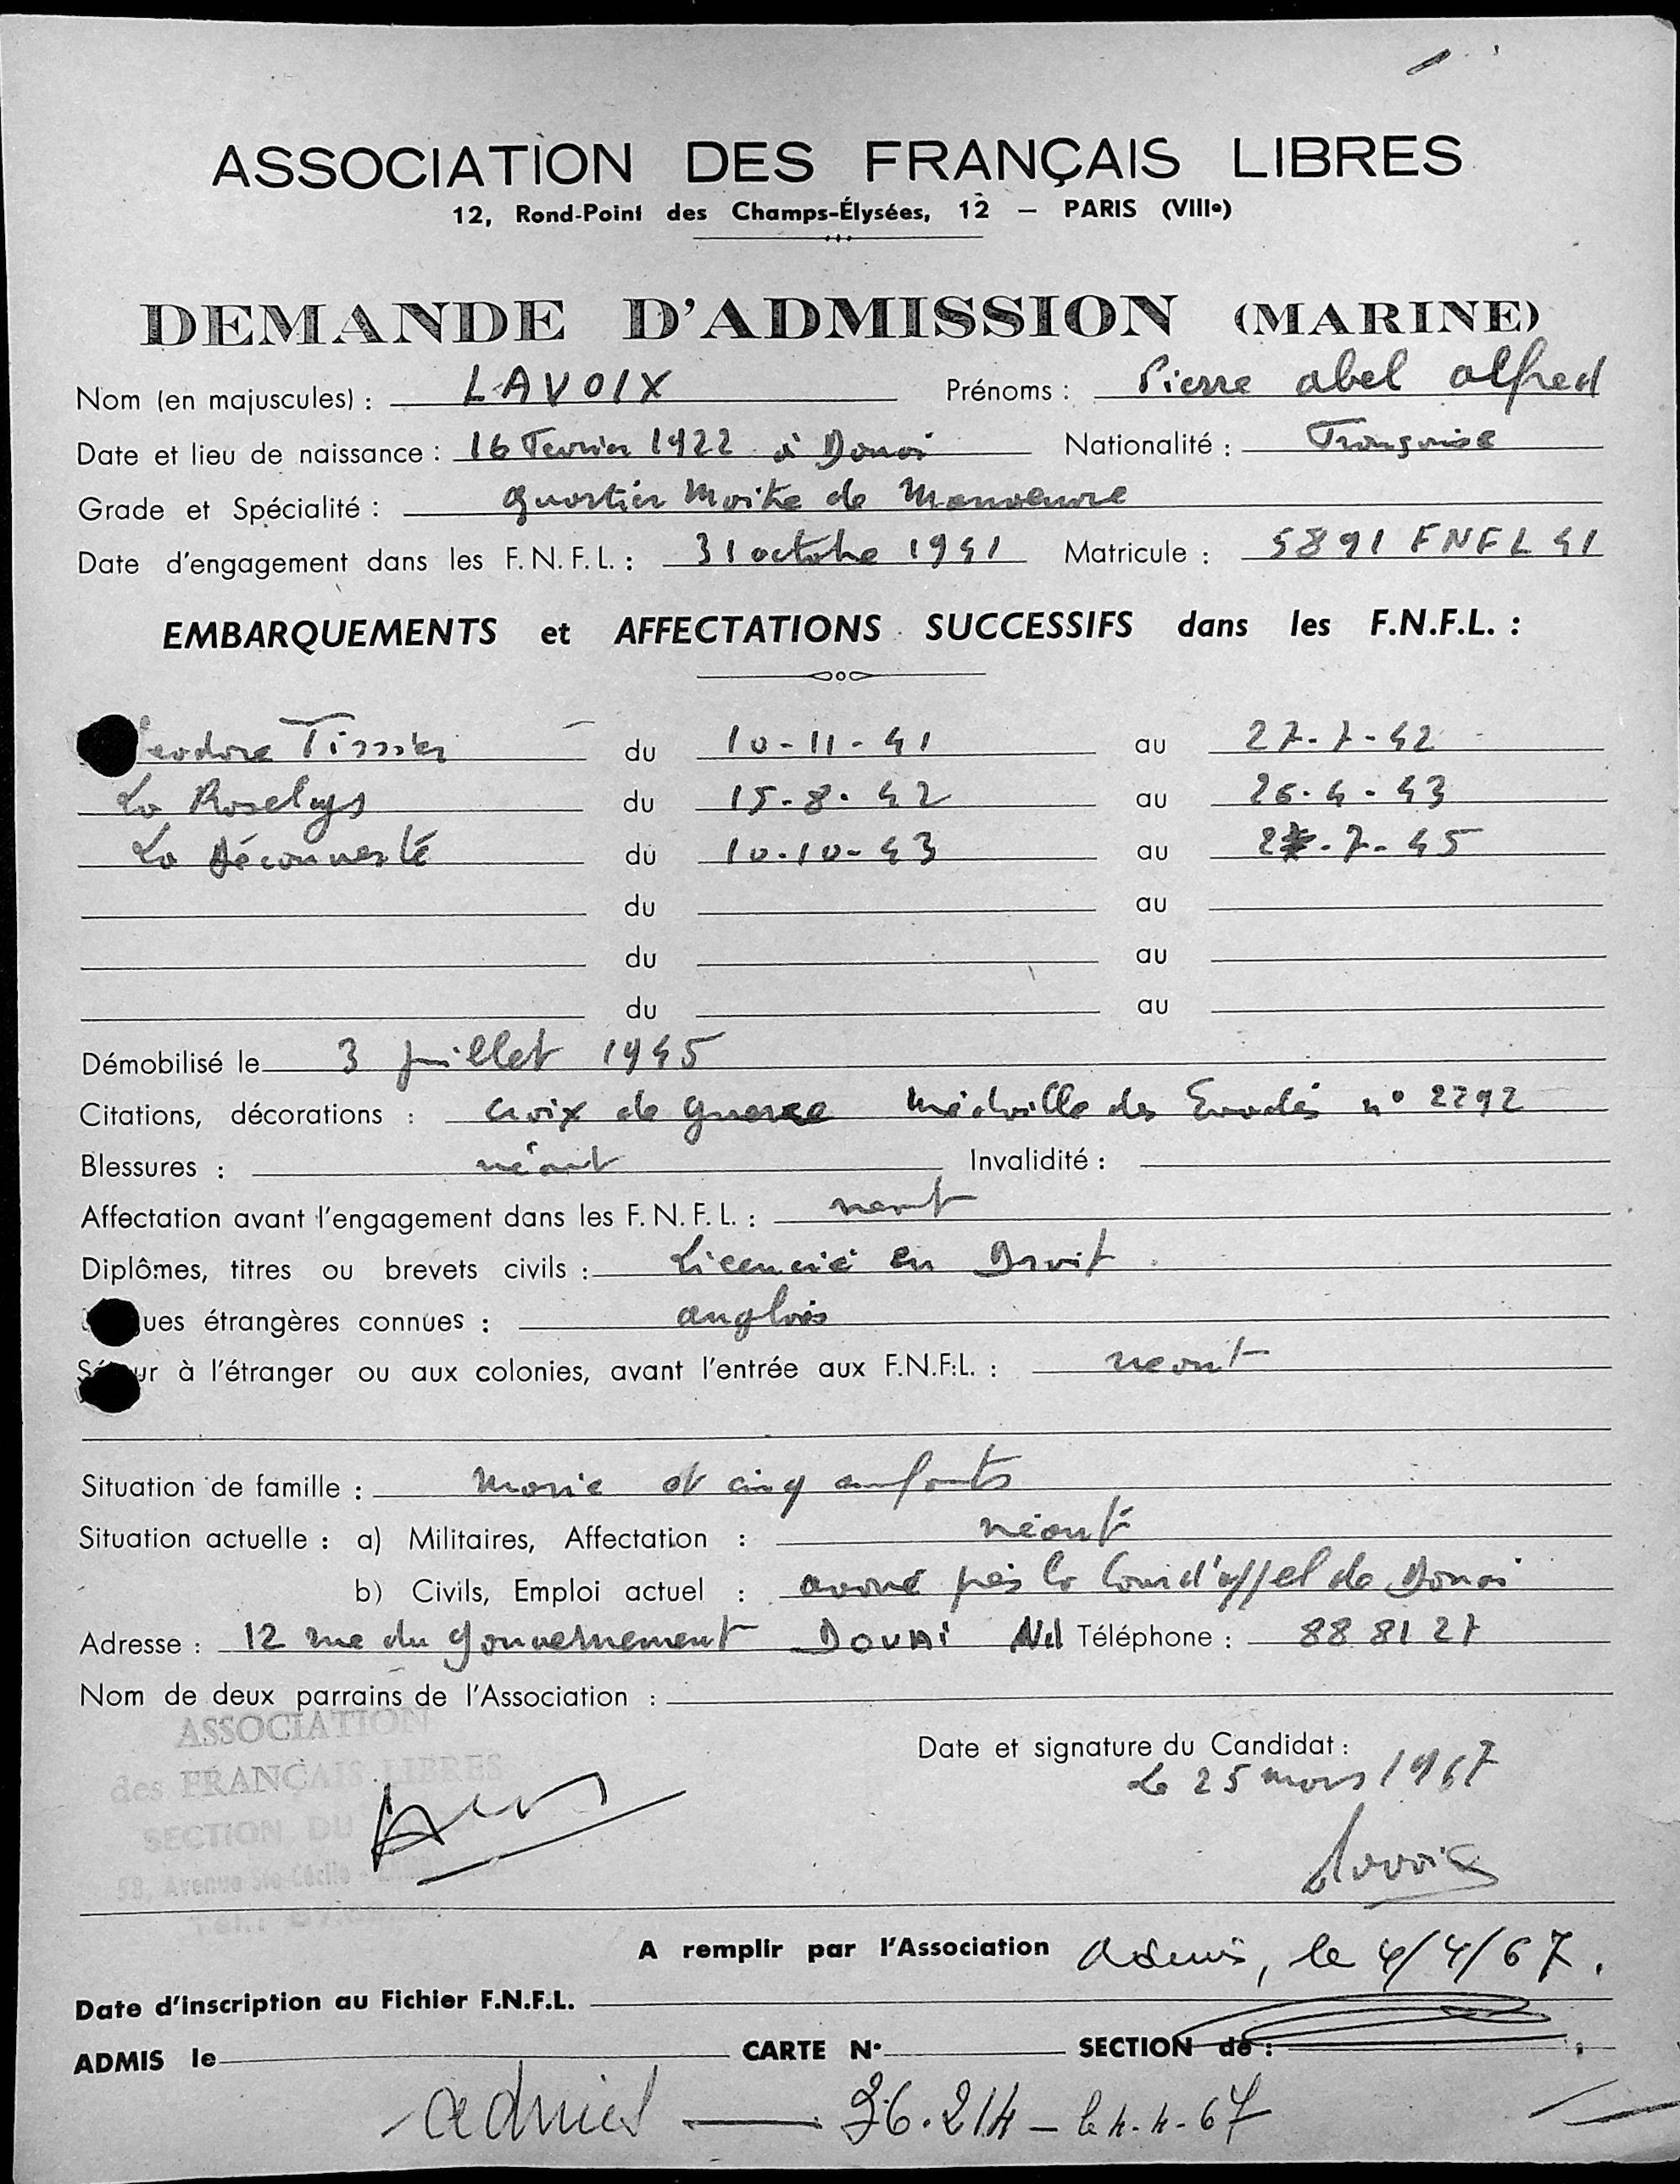 ASSOCIATION DES FRANÇAIS LIBRES
12, Rond-Point des Champs-Élysées, 12 — PARIS (VIIIe)
DEMANDE D'ADMISSION (MARINE)
Nom (en majuscules) : LAVOIX Prénoms : Pierre abel alfred
Date et lieu de naissance : 16 Fevrier 1922 à Douai Nationalité : Française
Grade et Spécialité : Quartier Maitre de Manoeuvre
Date d'engagement dans les F.N.F.L. : 31 octobre 1941 Matricule : 5891 FNFL 41
EMBARQUEMENTS et AFFECTATIONS SUCCESSIFS dans les F.N.F.L. :
eodore Tissier du 10-11-41 au 27-7-42
La Roselys du 15-8-42 au 26-4-43
La Découverte du 10-10-43 au 7-45
du au
du au
du au
Démobilisé le 3 juillet 1945
Citations, décorations : Croix de guerre Médaille des Evadés n° 2292
Blessures : néant Invalidité :
Affectation avant l'engagement dans les F.N.F.L. : neant
Diplômes, titres ou brevets civils : Licencié en Droit
ues étrangères connues : anglais
Séjour à l'étranger ou aux colonies, avant l'entrée aux F.N.F.L. : neant
Situation de famille : Marié et cinq enfants
Situation actuelle : a) Militaires, Affectation : néant
b) Civils, Emploi actuel : avoué près la Cour d'appel de Douai
Adresse : 12 rue du Gouvernement DOUAI Nd Téléphone : 88 81 27
Nom de deux parrains de l'Association :
ASSOCIATION
des FRANÇAIS LIBRES
SECTION DU
58, Avenue Ste-Cécile
Tél. :
Date et signature du Candidat :
Le 25 mars 1967
Lavoix
A remplir par l'Association Admis, le 4/4/67.
Date d'inscription au Fichier F.N.F.L.
ADMIS le CARTE N° SECTION de :
admis — 36.214 — le 4-4-67